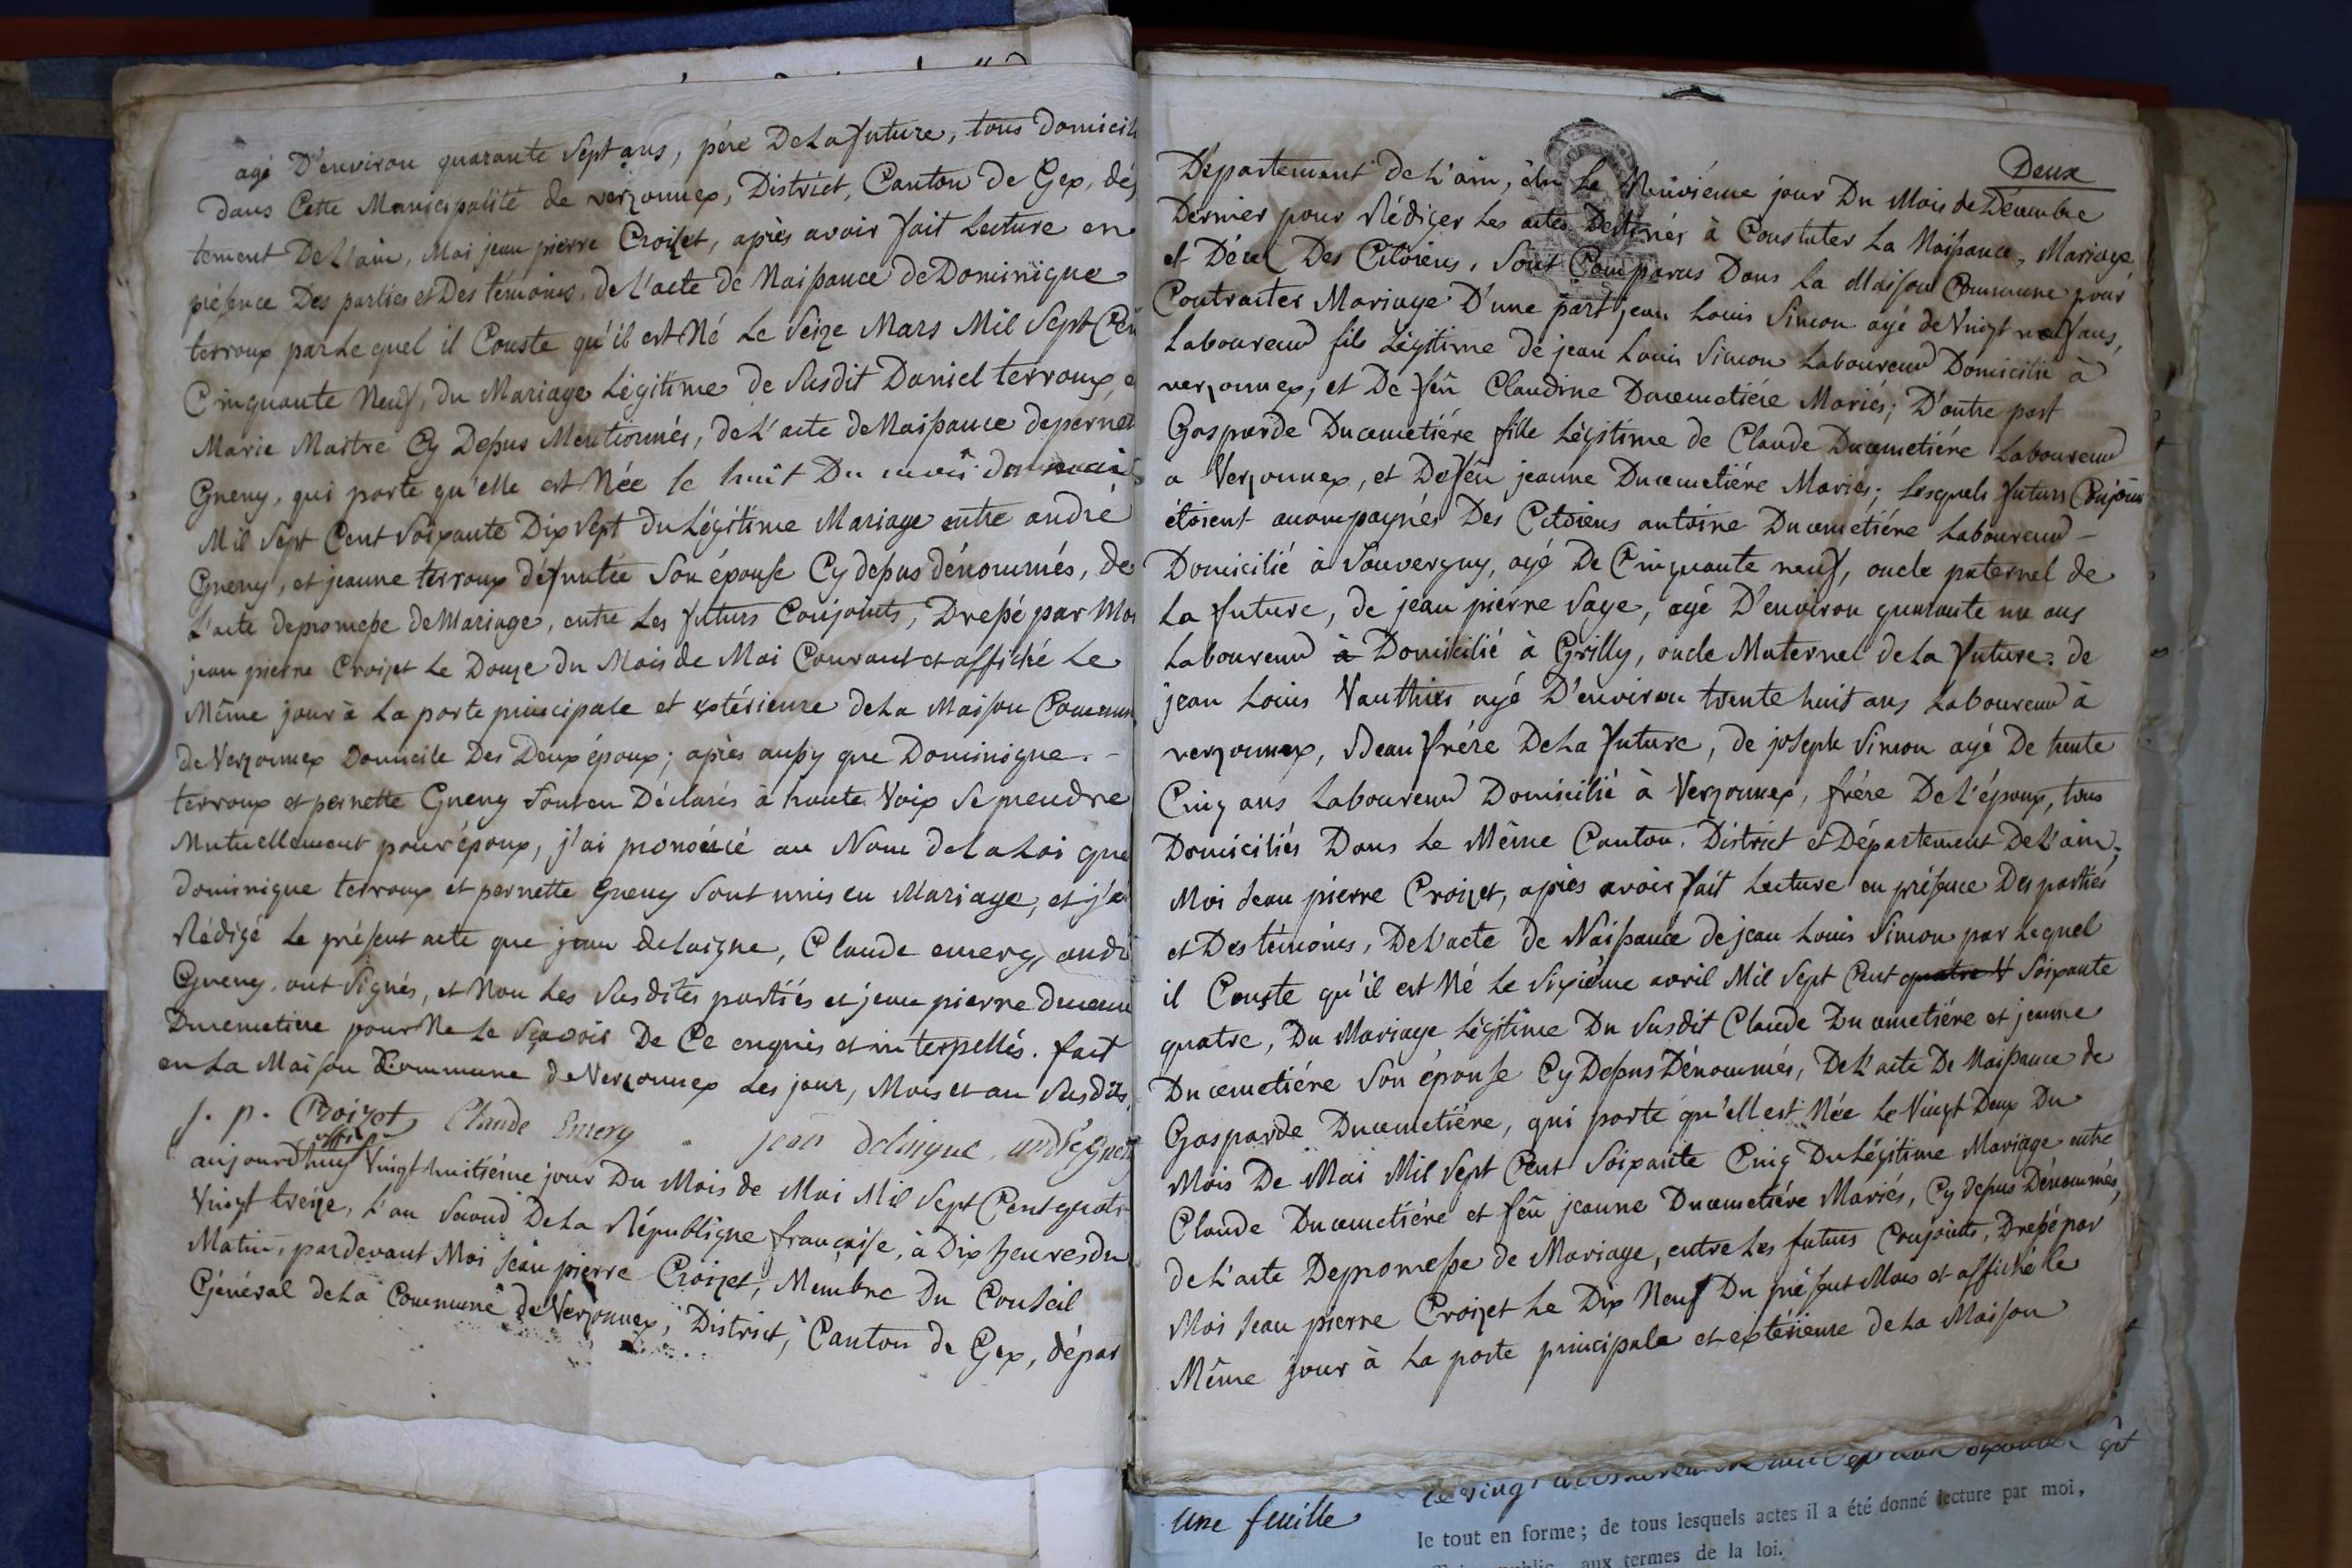 agé D'environ quarante Sept ans, pére De La future, tous domicil
dans Cette Municipalité de verzonnex, District, Canton de Gex, dép
tement De L'ain, Moi jean pierre Croizet, après avoir fait Lecture en
présence Des parties et Des témoins, de L'acte de Naissance de Dominique
terroux par Le quel il Conste qu'il est Né Le Seize Mars Mil Sept Cen
Cinquante Neuf, du Mariage Légitime de Susdit Daniel terroux, e
Marie Maitre Cy Dessus Mentionnés, de L'acte de Naissance de pernet
Greny, qui porte qu'elle est Née le huit Du mois de mai
Mil Sept Cent Soixante Dix Sept du Légitime Mariage entre andré
Greny, et jeanne terroux défuntée Son épouse Cy dessus dénommés, de
L'acte de promesse de Mariage, entre Les futurs Conjoints, Dressé par Moi
jean pierre Croizet Le Douze du Mois de Mai Courant et affiché Le
Même jour à La porte principale et extérieure de La Maison Commun
de Verzonnex Domicile Des Deux époux; après aussy que Dominique -
terroux et pernette Greny Sont en Déclarés à haute Voix Se prendre
Mutuellement pour époux, j'ai prononcié au Nom de La Loi que
dominique terroux et pernette Greny Sont unis en Mariage, et j'ai
Rédigé Le présent acte que jean delaigue, Claude emery, andr
Greny, ont Signés, et Non Les Susdites parties et jean pierre ducem
Ducemetiere pour Ne Le Sçavoir De Ce enquis et interpellés. fait
en La Maison Commune de Verzonnex Les jour, Mois et an Susdits.
j. p. Croizet offi. Claude Emery jean delaigue, andré Gren
aujourd'huy Vingt huitiéme jour Du Mois de Mai Mil Sept Cent quatr
Vingt treize, L'an Second De La République française, à Dix heures du
Matin, pardevant Moi Jean pierre Croizet, Membre Du Conseil
Général de La Commune de Verzonnex, District, Canton de Gex, dépar
Deux
Département de L'ain, élu Le Neuviéme jour Du Mois de Décembre
Dernier pour Rédiger Les actes Destinés à Constater La Naissance, Mariage
et Décez Des Citoiens, Sont Comparus Dans La Maison Commune pour
Contracter Mariage D'une part jean Louis Simon agé de Vingt neuf ans,
Laboureur fils Légitime de jean Louis Simon Laboureur Domicilié à
verzonnex, et De feû Claudine Ducemetiére Mariés; D'autre part
Gasparde Ducemetiére fille Légitime de Claude Ducemetiére Laboureur
a Verzonnex, et De feû jeanne Ducemetiére Mariés; Lesquels futurs Conjoins
étoient accompagnés Des Citoiens antoine Ducemetiére Laboureur -
Domicilié à Sauvergny, agé De Cinquante neuf, oncle paternel de
La future, de jean pierre Saye, agé D'environ quarante un ans
Laboureur à Domicilié à Grilly, oncle Maternel de La future: de
jean Louis Vauthier agé D'environ trente huit ans Laboureur à
verzonnex, Beau frére De La future, de joseph Simon agé De trente
Cinq ans Laboureur Domicilié à Verzonnex, frére De L'époux, tous
Domiciliés Dans Le Même Canton, District et Département De L'ain;
Moi Jean pierre Croizet, après avoir fait Lecture en présence Des parties
et Des témoins, De L'acte de Naissance de jean Louis Simon par Lequel
il Conste qu'il est Né Le Sixiéme avril Mil Sept Cent quatre V Soixante
quatre, Du Mariage Légitime Du Susdit Claude Ducemetiére et jeanne
Ducemetiére Son épouse Cy Dessus Dénommés, De L'acte De Naissance de
Gasparde Ducemetiére, qui porte qu'ell est Née Le Vingt Deux Du
Mois De Mai Mil Sept Cent Soixante Cinq Du Légitime Mariage entre
Claude Ducemetiére et feû jeanne Ducemetiére Mariés, Cy dessus Dénommés,
de L'acte De promesse de Mariage, entre Les futurs Conjoints, Dressé par
Moi Jean pierre Croizet Le Dix Neuf Du présent Mois et affiché Le
Même jour à La porte principale et extérieure de La Maison
une feuille
le tout en forme; de tous lesquels actes il a été donné lecture par moi,
aux termes de la loi.